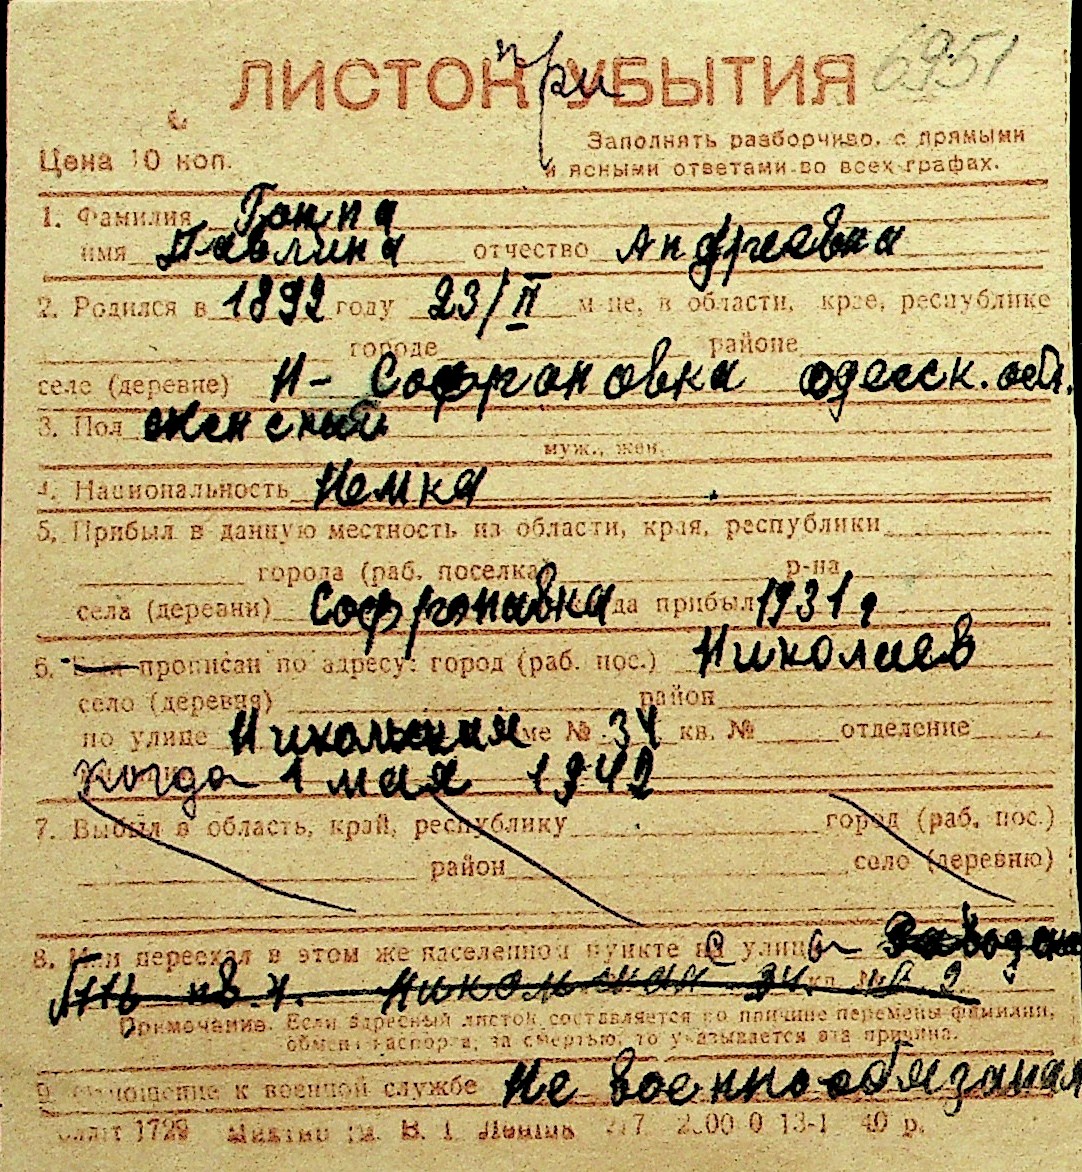 6951
ЛИСТОК при УБЫТИЯ
Цена 10 коп.
Заполнять разборчиво, с прямыми
и ясными ответами во всех графах.
1. Фамилия Гоппа
имя Павлина отчество Андреевна
2. Родился в 1892 году 23/II м-це, в области, крае, республике
городе районе
селе (деревне) Н-Софроновка одесск. обл.
3. Пол женский
муж., жен.
4. Национальность Немка
5. Прибыл в данную местность из области, края, республики
города (раб. поселка) р-на
села (деревни) Софронавка да прибыл 1931,
6. Был прописан по адресу: город (раб. пос.) Николаев
село (деревня) район
по улице Никольская ме № 34 кв. № отделение
когда 1 мая 1942
7. Выбыл в область, край, республику город (раб. пос.)
район село (деревню)
8. Или переехал в этом же населенном пункте с улицы Заводская
Никольская 34. кв. № 2
Примечание. Если адресный листок составляется по причине перемены фамилии,
обмена паспорта, за смертью, то указывается эта причина.
9. Отношение к военной службе Не военнообязаная
1729 В. І. Леніна 217 40 р.